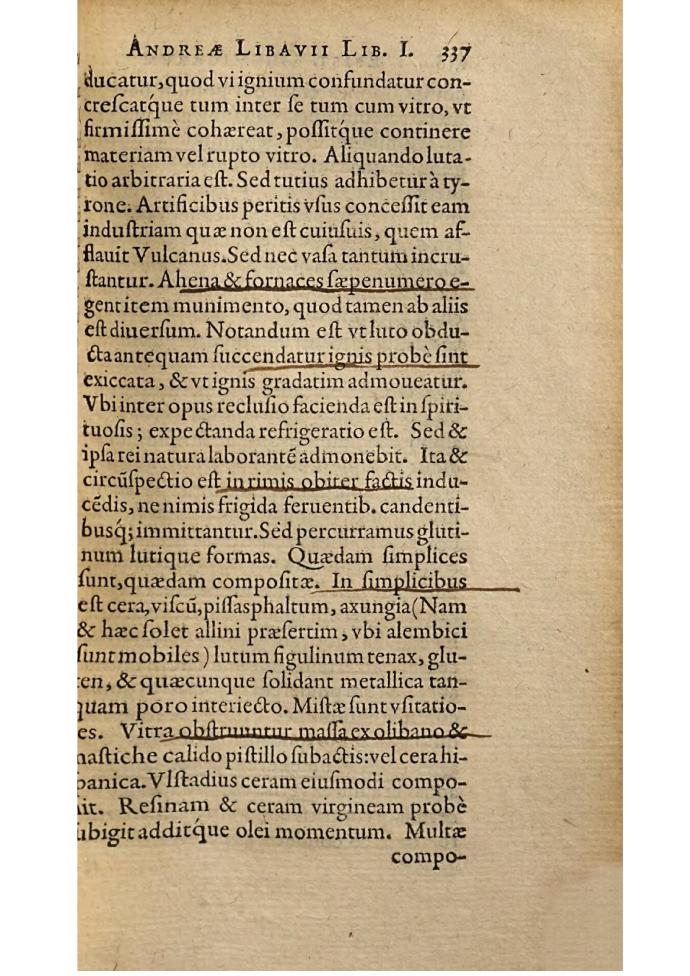 ANDREÆ LIBAVII LIB. I. 337
ducatur, quod vi ignium confundatur con-
creſcatq́ue tum inter ſe tum cum vitro, vt
firmiſſimè cohæreat, poſſitq́ue continere
materiam vel rupto vitro. Aliquando luta-
tio arbitraria eſt. Sed tutius adhibetur à ty-
rone. Artificibus peritis vſus conceſſit eam
induſtriam quæ non eſt cuiuſuis, quem af-
flauit Vulcanus. Sed nec vaſa tantum incru-
ſtantur. Ahena & fornaces ſæpenumero e-
gent item munimento, quod tamen ab aliis
eſt diuerſum. Notandum eſt vt luto obdu-
cta antequam ſuccendatur ignis probè ſint
exiccata, & vt ignis gradatim admoueatur.
Vbi inter opus recluſio facienda eſt in ſpiri-
tuoſis; expectanda refrigeratio eſt. Sed &
ipſa rei natura laborantẽ admonebit. Ita &
circũſpectio eſt in rimis obiter factis indu-
cẽdis, ne nimis frigida feruentib. candenti-
busq́; immittantur. Sed percurramus gluti-
num lutique formas. Quædam ſimplices
ſunt, quædam compoſitæ. In ſimplicibus
eſt cera, viſcũ, piſſasphaltum, axungia (Nam
& hæc ſolet allini præſertim, vbi alembici
ſunt mobiles) lutum figulinum tenax, glu-
ten, & quæcunque ſolidant metallica tan-
quam poro interiecto. Miſtæ ſunt vſitatio-
es. Vitra obſtruuntur maſſa ex olibano &
maſtiche calido piſtillo ſubactis: vel cera hi-
ſpanica. Vlſtadius ceram eiuſmodi compo-
nit. Reſinam & ceram virgineam probè
ſubigit additq́ue olei momentum. Multæ
compo-